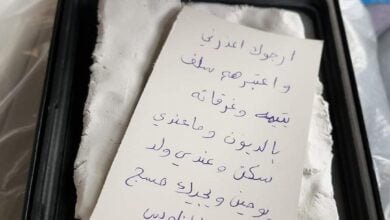 ارجوك اعذرني
واعتبرهم سلف
يتيمه وغرقانه
بالديون وماعندي
سكن وعندي ولد
توحدين ويجيك مسج